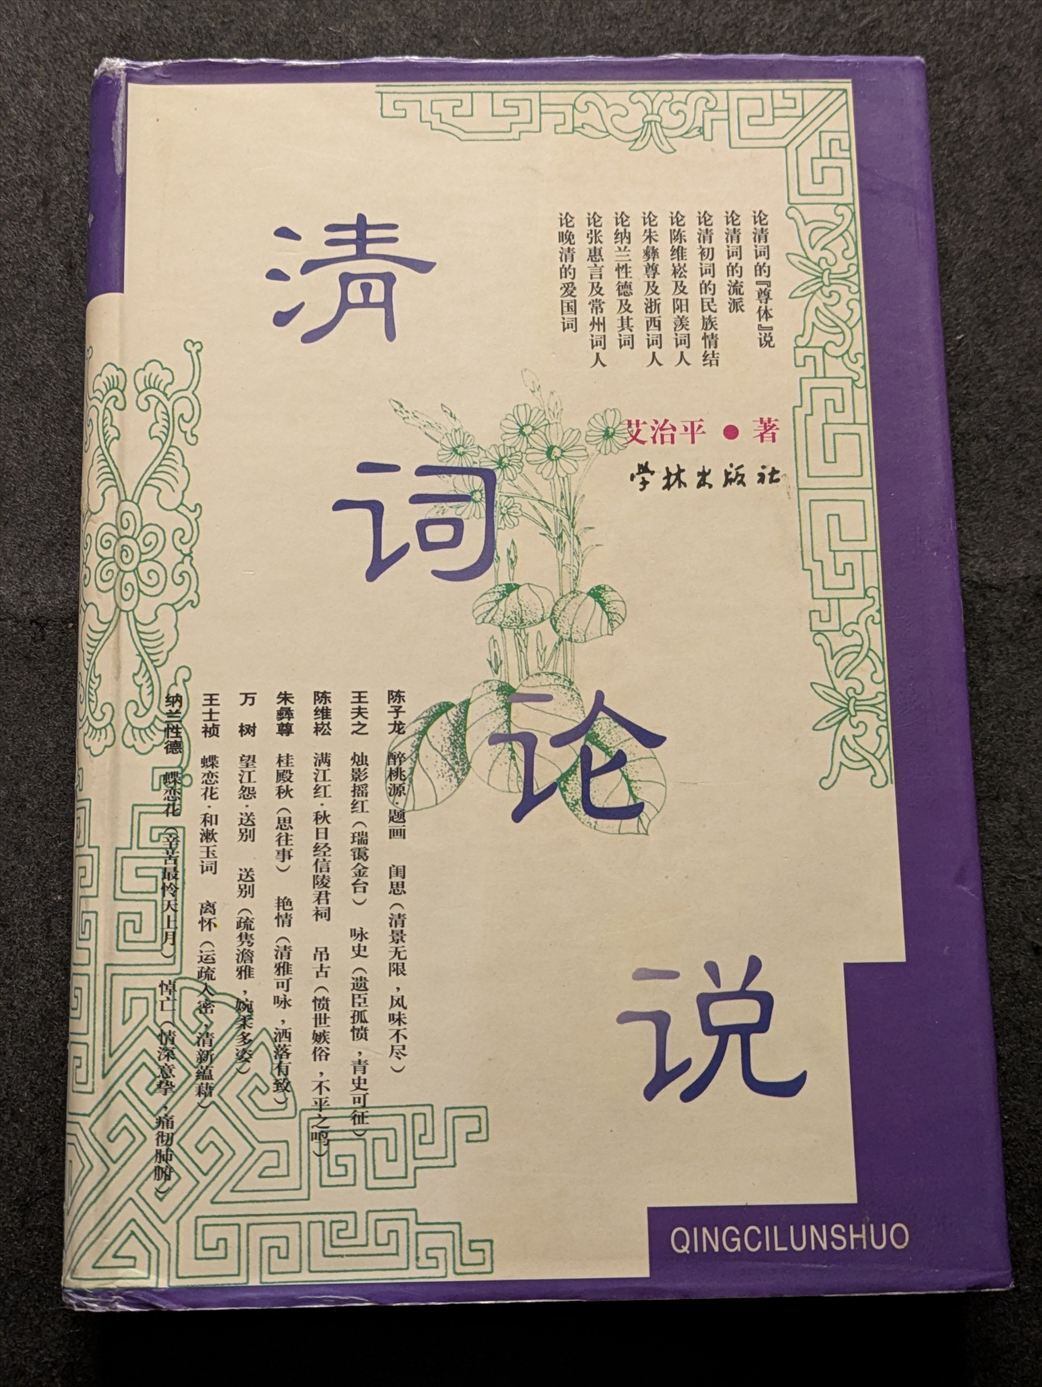 清词论说
论清词的『尊体』说
论清词的流派
论清初词的民族情结
论陈维崧及阳羡词人
论朱彝尊及浙西词人
论纳兰性德及其词
论张惠言及常州词人
论晚清的爱国词
艾治平●著
学林出版社
陈子龙 醉桃源·题画 闺思（清景无限，风味不尽）
王夫之 烛影摇红（瑞霭金台） 咏史（遗臣孤愤，青史可征）
陈维崧 满江红·秋日经信陵君祠 吊古（愤世嫉俗，不平之鸣）
朱彝尊 桂殿秋（思往事） 艳情（清雅可咏，洒落有致）
万树 望江怨·送别 送别（疏隽澹雅，婉柔多姿）
王士祯 蝶恋花·和漱玉词 离怀（运疏入密，清新蕴藉）
纳兰性德 蝶恋花（辛苦最怜天上月） 悼亡（情深意挚，痛彻肺腑）
QINGCILUNSHUO